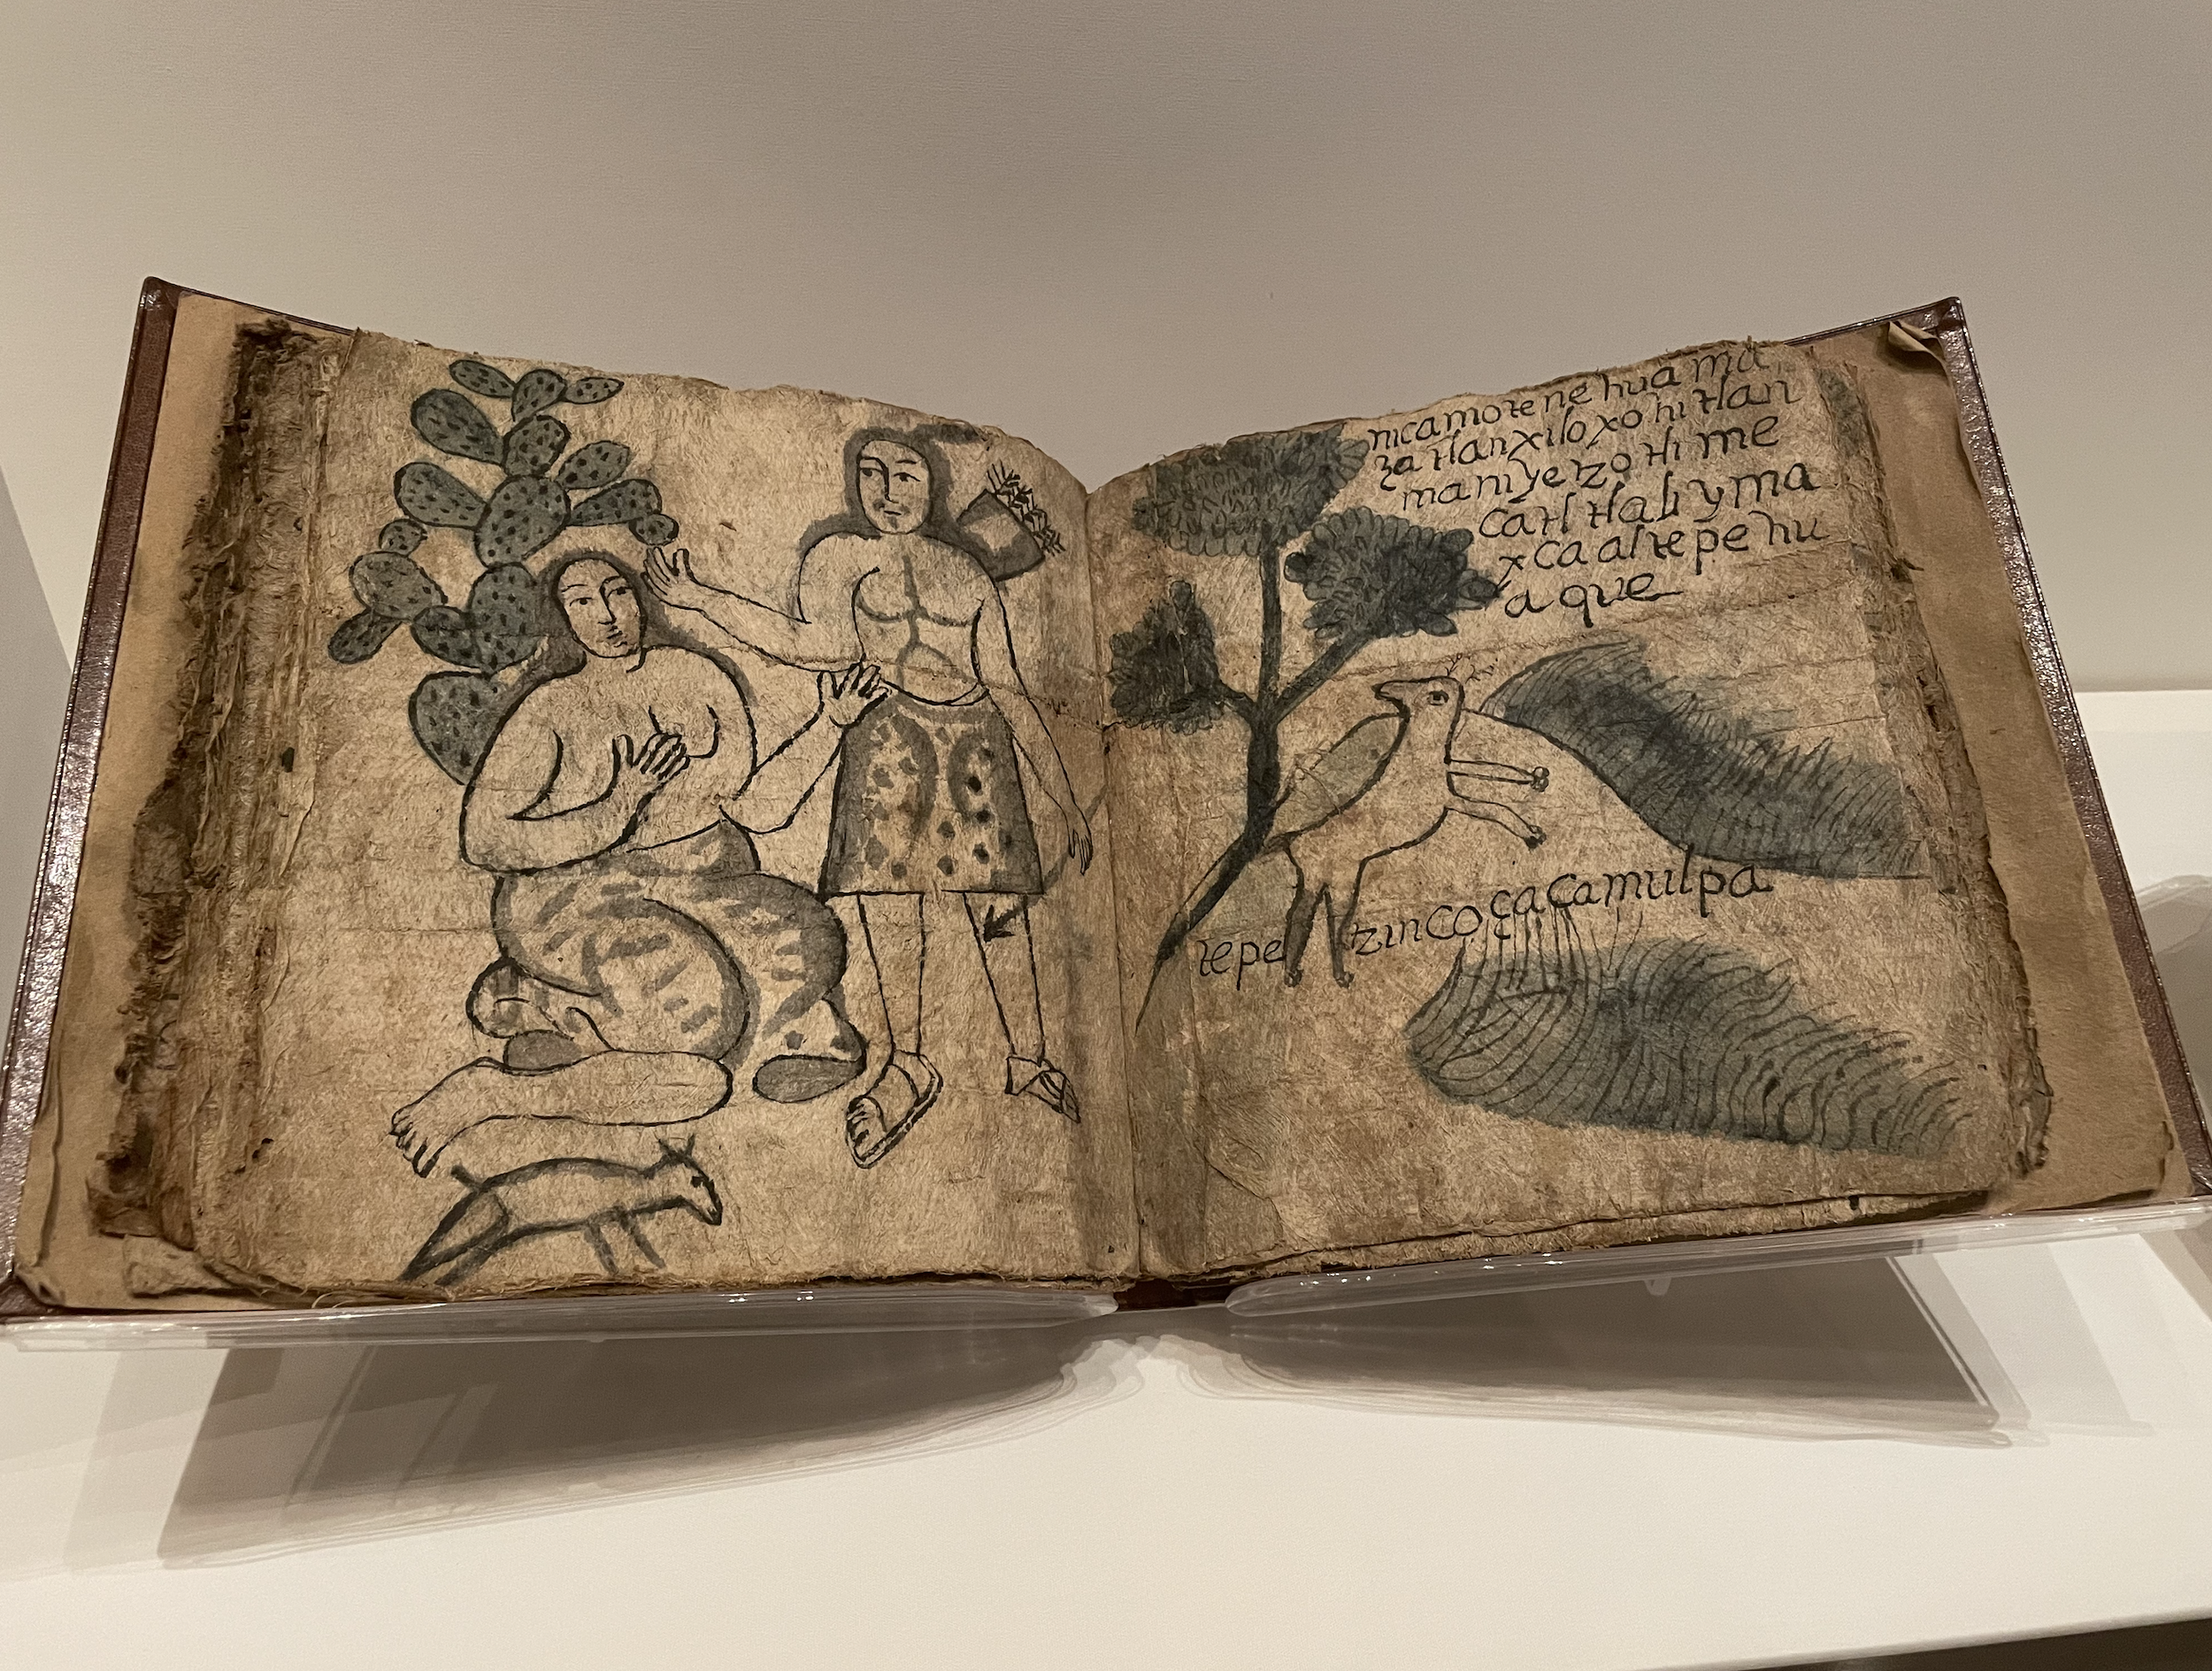 nicamotenehua ma
zatlanxiloxohitlan
maniyetzotli me
catl tlaliyma
xca altepehu
a que
tepetzinco çacamulpa